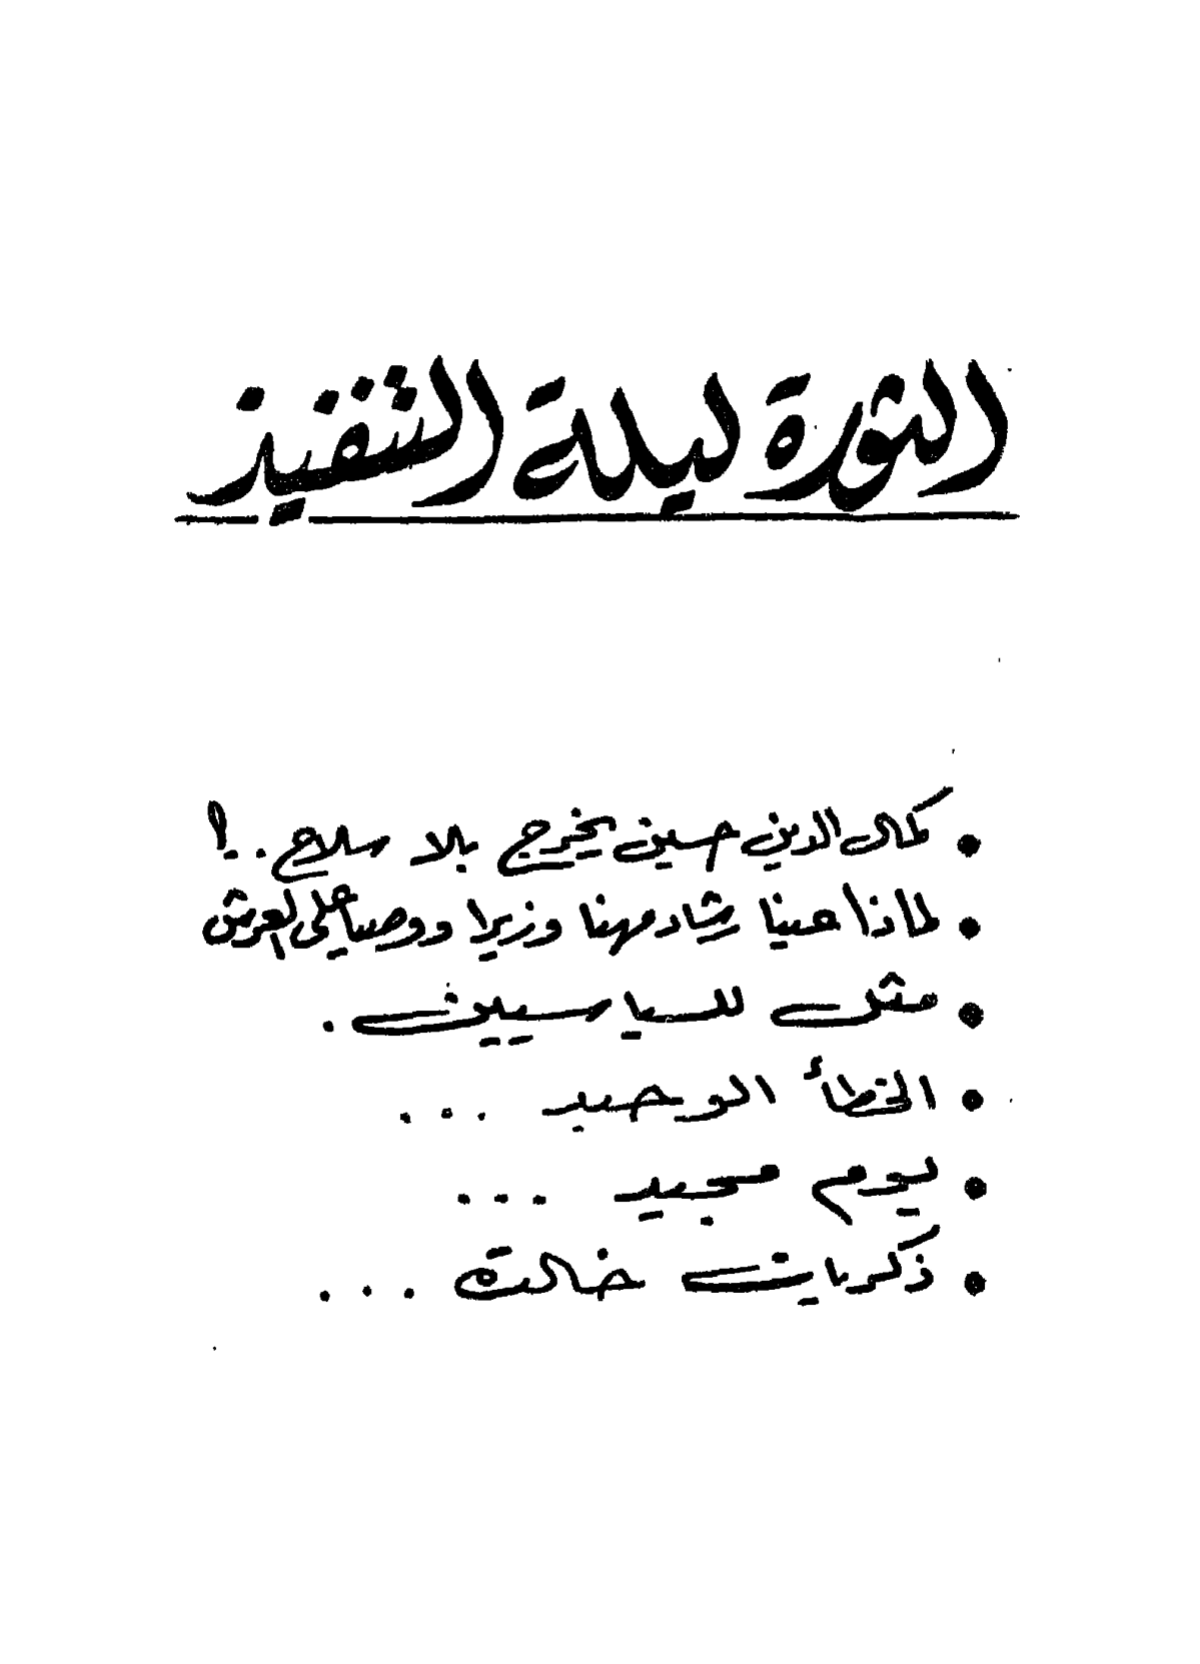 الثورة ليلة التنفيذ
• كمال الدين حسين يخرج بلا سلاح . !
• لماذا عينا رشاد مهنا وزيرا ووصيا على العرش
• مثل للسياسيين .
• الخطأ الوحيد ...
• يوم مجيد ...
• ذكريات خالدة ...